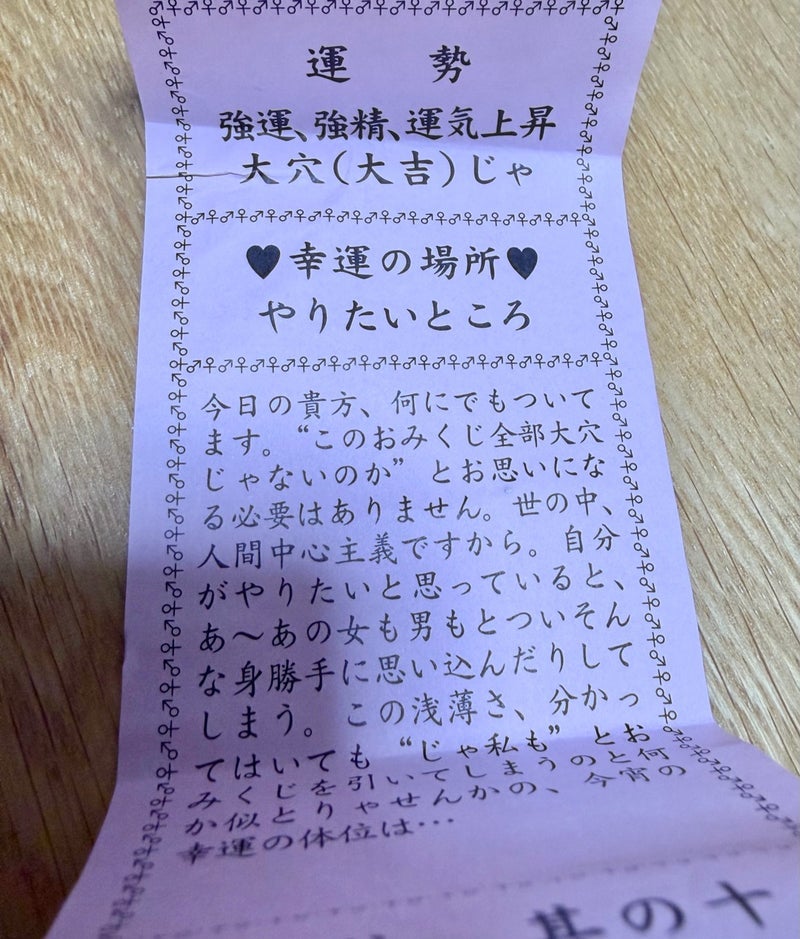 運勢
強運、強精、運気上昇
大穴(大吉)じゃ
♥幸運の場所♥
やりたいところ
今日の貴方、何にでもついて
ます。“このおみくじ全部大穴
じゃないのか”とお思いにな
る必要はありません。世の中、
人間中心主義ですから。自分
がやりたいと思っていると、
あ〜あの女も男もとついそん
な身勝手に思い込んだりして
しまう。この浅薄さ、分かっ
てはいても“じゃ私も”とお
みくじを引いてしまうのと何
か似とりゃせんかの、今宵の
幸運の体位は…
其の十